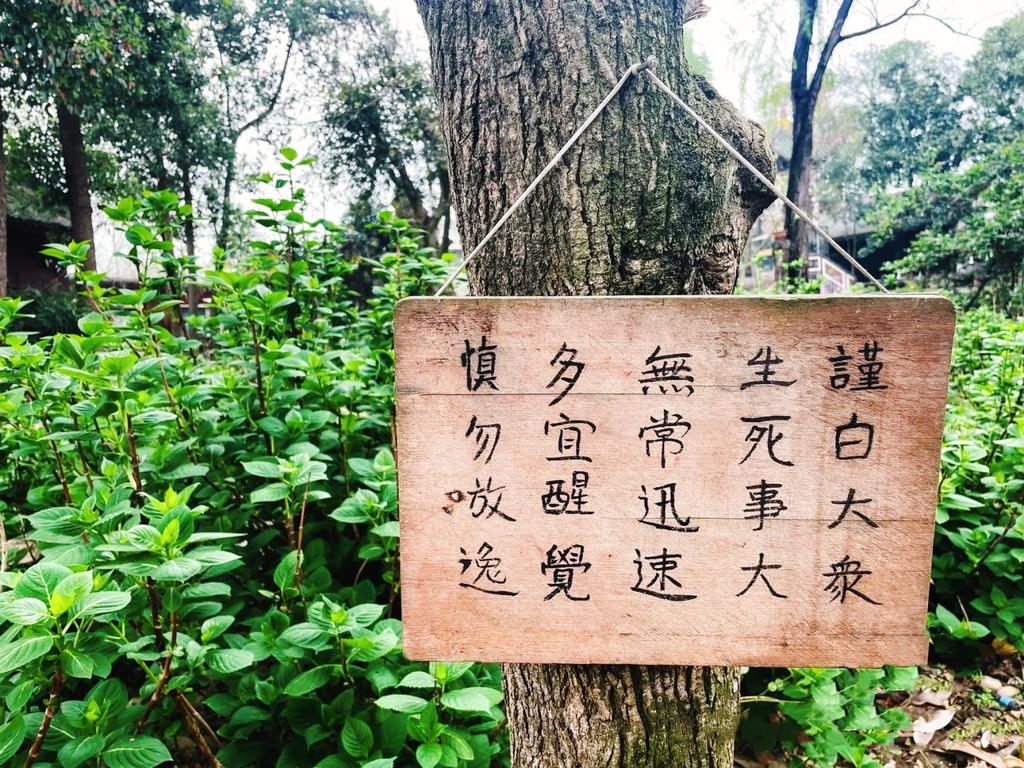 謹白大眾
生死事大
無常迅速
多宜醒覺
慎勿放逸